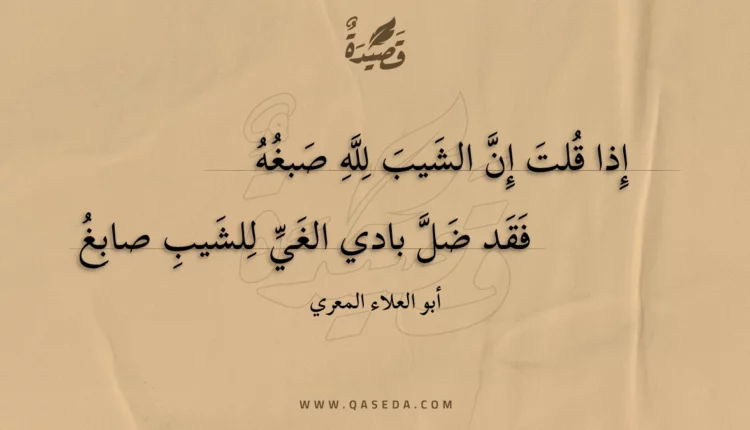 قَصِيْدَةٌ
إِذا قُلتَ إِنَّ الشَيبَ لِلَّهِ صَبغُهُ
فَقَد ضَلَّ بادي الغَيِّ لِلشَيبِ صابِغُ
أبو العلاء المعري
WWW.QASEDA.COM